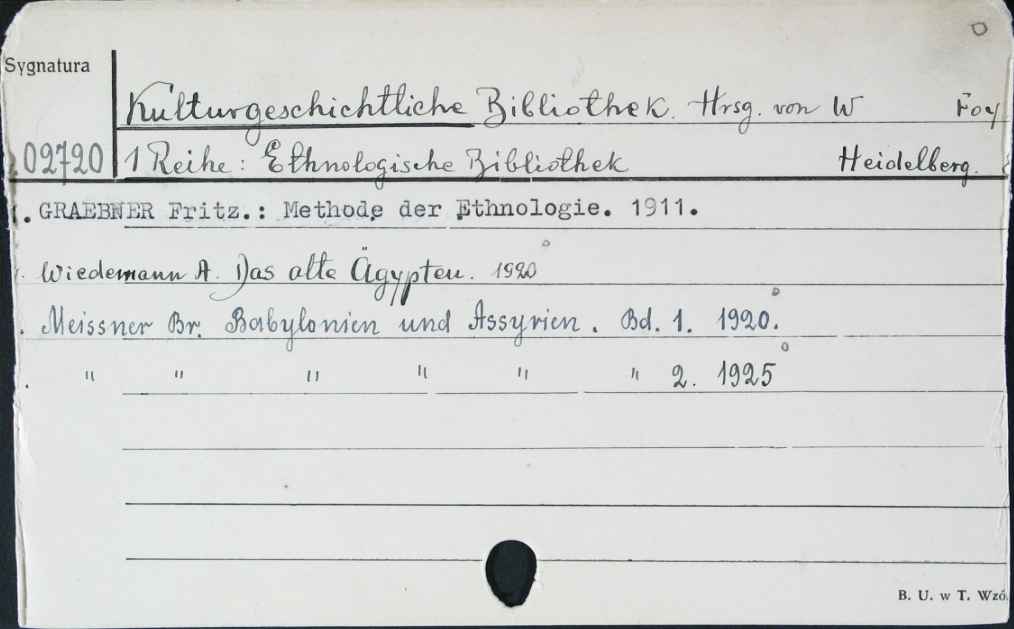 Sygnatura
Kulturgeschichtliche Bibliothek. Hrsg. von W Foy
02720 1 Reihe: Ethnologische Bibliothek Heidelberg.
. GRAEBNER Fritz.: Methode der Ethnologie. 1911.
Wiedemann A. Das alte Ägypten. 1920
. Meissner Br. Babylonien und Assyrien. Bd. 1. 1920.
. " " " " " " 2. 1925
B. U. w T. Wzó